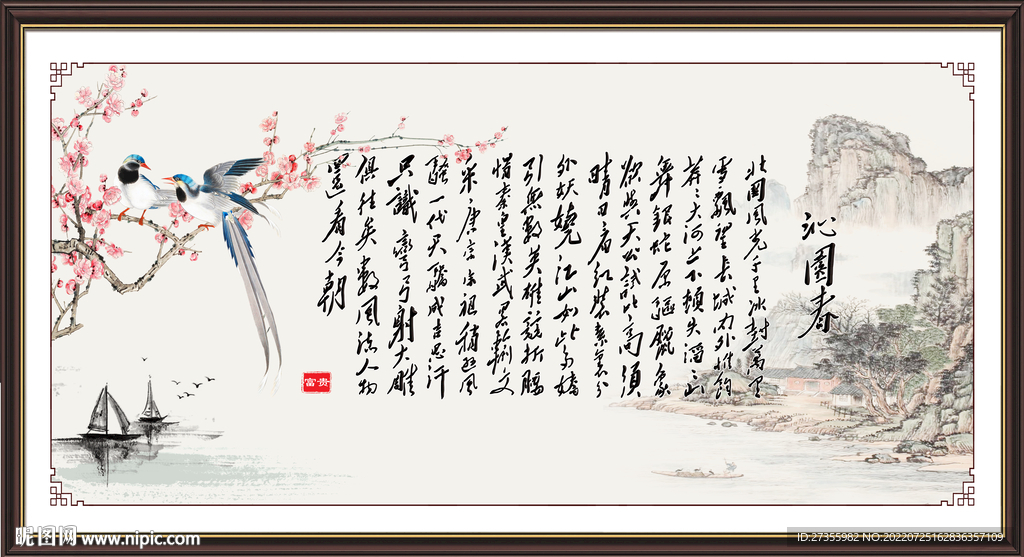 沁園春
北國風光千里冰封萬里
雪飄望長城內外惟餘
莽々大河上下頓失滔々山
舞銀蛇原驅臘象
欲與天公試比高須
晴日看紅裝素裹分
外妖嬈江山如此多嬌
引無數英雄競折腰
惜秦皇漢武略輸文
采唐宗宋祖稍遜風
騷一代天驕成吉思汗
只識彎弓射大雕
俱往矣數風流人物
還看今朝
富贵
昵图网 www.nipic.com
ID:27355982 NO.20220725162836357109